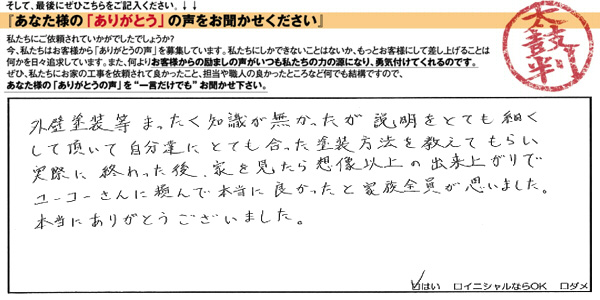 そして、最後にぜひこちらをご記入ください。↓↓
『あなた様の「ありがとう」の声をお聞かせください』
私たちにご依頼されていかがでしたでしょうか?
今、私たちはお客様から「ありがとうの声」を募集しています。私たちにしかできないことはないか、もっとお客様にして差し上げることは
何かを日々追求しています。また、何よりお客様からの励ましの声がいつも私たちの力の源になり、勇気付けてくれるのです。
ぜひ、私たちにお家の工事を依頼されて良かったこと、担当や職人の良かったところなど何でも結構ですので、
あなた様の「ありがとうの声」を“一言だけでも”お聞かせ下さい。
太鼓判
外壁塗装等まったく知識が無かったが説明をとても細く
して頂いて自分達にとても合った塗装方法を教えてもらい
実際に終わった後、家を見たら想像以上の出来上がりで
ユーコーさんに頼んで本当に良かったと家族全員が思いました。
本当にありがとうございました。
☑はい □イニシャルならOK □ダメ